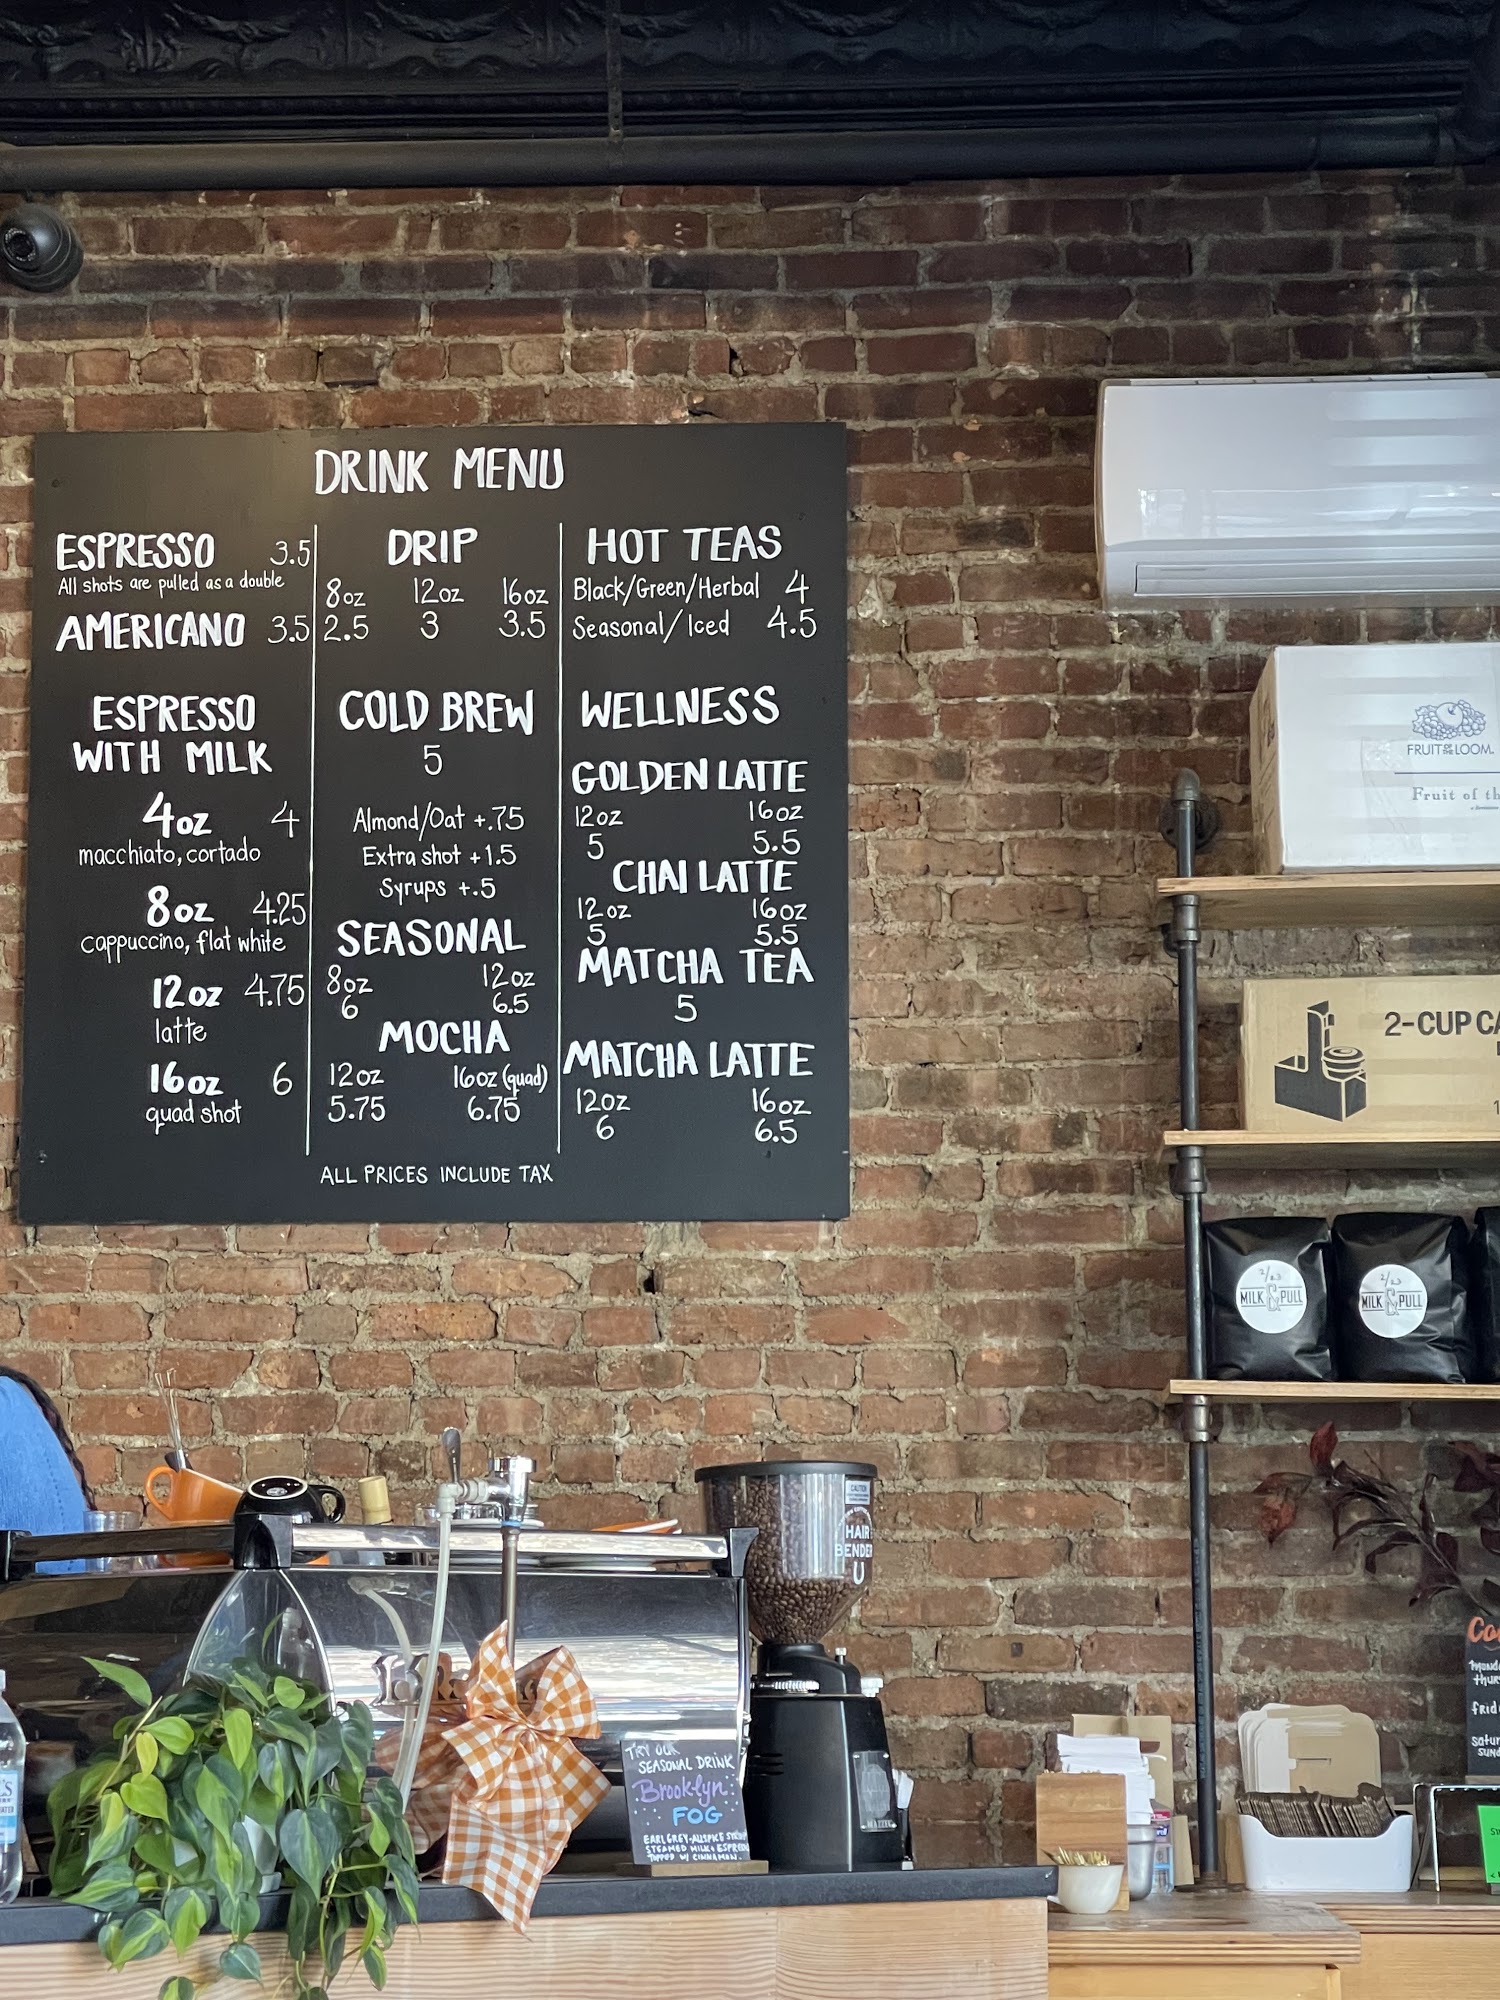 DRINK MENU
ESPRESSO 3.5
All shots are pulled as a double
AMERICANO 3.5
ESPRESSO
WITH MILK
4oz 4
macchiato, cortado
8oz 4.25
cappuccino, flat white
12oz 4.75
latte
16oz 6
quad shot
DRIP
8oz 12oz 16oz
2.5 3 3.5
COLD BREW
5
Almond/Oat +.75
Extra shot +1.5
Syrups +.5
SEASONAL
8oz 12oz
6 6.5
MOCHA
12oz 16oz (quad)
5.75 6.75
HOT TEAS
Black/Green/Herbal 4
Seasonal/Iced 4.5
WELLNESS
GOLDEN LATTE
12oz 16oz
5 5.5
CHAI LATTE
12oz 16oz
5 5.5
MATCHA TEA
5
MATCHA LATTE
12oz 16oz
6 6.5
ALL PRICES INCLUDE TAX
FRUIT OF THE LOOM.
Fruit of th
2-CUP CA
2/23
MILK & PULL
2/23
MILK & PULL
CAUTION
HAIR
BENDER
U
TRY OUR
SEASONAL DRINK
Brooklyn
FOG
EARL GREY-ALLSPICE SYRUP
STEAMED MILK + ESPRESSO
TOPPED W/ CINNAMON.